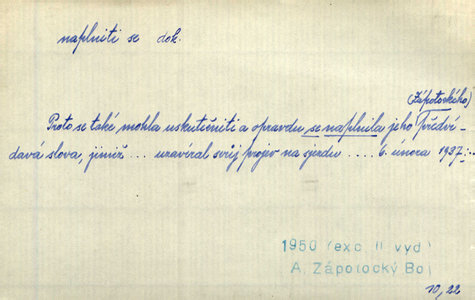 naplniti se dok.
(Zápotockého)
Proto se také mohla uskutečniti a opravdu se naplnila jeho předví-
davá slova, jimiž ... uzavíral svůj projev na sjezdu .... 6. února 1937 :..
1950 (exc. II. vyd)
A. Zápotocký Boj
10, 22